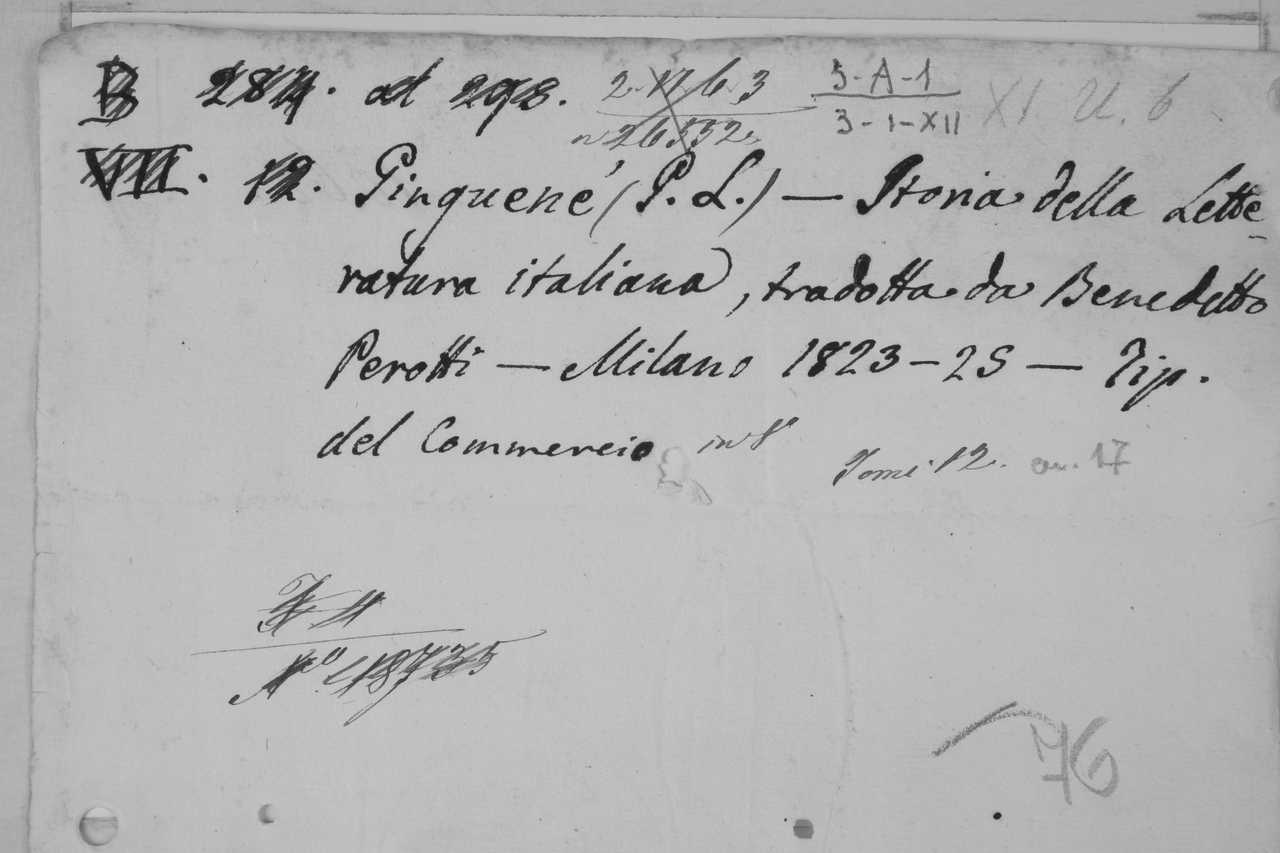 B 284. al 298. 2-17 6 3 3-A-1 XI. U. 6
n 26532 3-I-XII
VII. 12. Ginguené (P. L.) — Storia della Lette-
ratura italiana, tradotta da Benedetto
Perotti — Milano 1823-25 — Tip.
del Commercio in 8° Tomi 12. 17
N° 18735
76